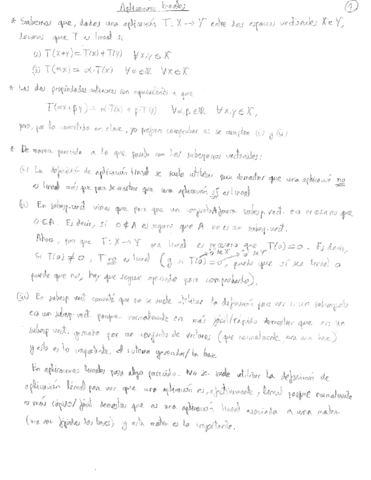 Aplicaciones lineales
1
* Sabemos que, dada una aplicación T: X → Y entre dos espacios vectoriales X e Y,
tenemos que T es lineal si
(i) T(x+y) = T(x) + T(y) ∀x,y ∈ X
(ii) T(αx) = α·T(x) ∀α∈ℝ ∀x∈X
* Las dos propiedades anteriores son equivalentes a que
T(αx+βy) = α·T(x) + β·T(y) ∀α,β∈ℝ ∀x,y∈X,
pero, por lo en clase, yo prefiero comprobar si se cumplen (i) y (ii)
* De manera parecida a lo que pasaba con los subespacios vectoriales:
(i) La definición de aplicación lineal se suele utilizar para demostrar que una aplicación no
es lineal más que para demostrar que una aplicación sí es lineal
(ii) En subesp. vect. vimos que para que un conjunto A fuera subesp. vect. era necesario que
0∈A. Es decir, si 0∉A es seguro que A no es un subesp. vect.
Ahora, para que T: X → Y sea lineal es necesario que T(0) = 0. Es decir,
si T(0) ≠ 0, T no es lineal (y si T(0) = 0, puede que sí sea lineal o
puede que no, hay que seguir operando para comprobarlo).
(iii) En subesp. vect. comenté que no se suele utilizar la definición para ver si un subconjunto
era un subesp. vect. porque normalmente era más fácil/rápido demostrar que era un
subesp. vect. generado por un conjunto de vectores (que normalmente era una base)
y esto es lo importante, el sistema generador/la base.
En aplicaciones lineales pasa algo parecido. No se suele utilizar la definición de
aplicación lineal para ver que una aplicación es, efectivamente, lineal porque normalmente
es más rápido/fácil demostrar que es una aplicación lineal asociada a una matriz
(una vez fijadas las bases) y esta matriz es lo importante.